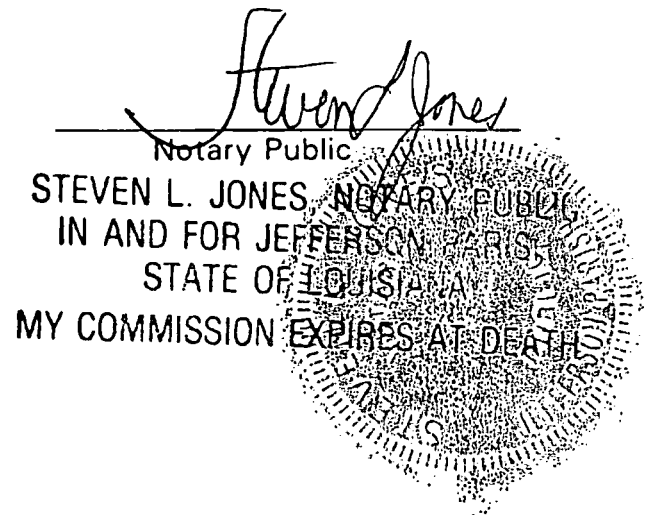 Steven L Jones
Notary Public
STEVEN L. JONES, NOTARY PUBLIC
IN AND FOR JEFFERSON PARISH
STATE OF LOUISIANA
MY COMMISSION EXPIRES AT DEATH
STEVE
JEFFERSON PARISH